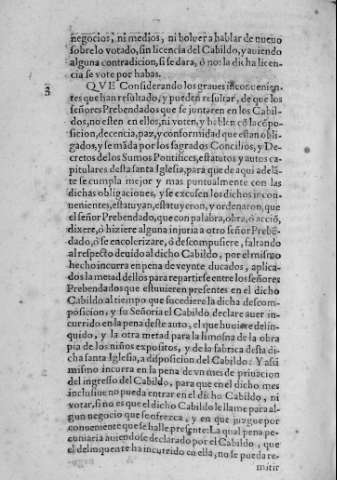 negocios, ni medios, ni boluer a hablar de nueuo
sobre lo votado, sin licencia del Cabildo, y auiendo
alguna contradicion, si se dara, ò no: la dicha licen-
cia se vote por habas.
3 QVE Considerando los graues inconuenien-
tes que han resultado, y pueden resultar, de que los
señores Prebendados que se juntaren en los Cabil-
dos, no esten en ellos, ni voten, y hablen cõ la cõpo-
sicion, decencia, paz, y conformidad que estan obli-
gados, y se mãda por los sagrados Concilios, y De-
cretos de los Sumos Pontifices, estatutos y autos ca-
pitulares desta santa Iglesia, para que de aqui adelã-
te se cumpla mejor y mas puntualmente con las
dichas obligaciones, y se escusen los dichos incon-
uenientes, estatuyan, estatuyeron, y ordenaron, que
el señor Prebendado, que con palabra, obra, ò acciõ,
dixere, ò hiziere alguna injuria a otro señor Prebẽ-
dado, ò se encolerizare, ò descompusiere, faltando
al respecto deuido al dicho Cabildo, por el mismo
hecho incurra en pena de veynte ducados, aplica-
dos la metad dellos para repartirse entre los señores
Prebendados que estuuieren presentes en el dicho
Cabildo al tiempo que sucediere la dicha descom-
posicion, y su Señoria el Cabildo declare auer in-
currido en la pena deste auto, el que huuiere delin-
quido, y la otra metad para la limosna de la obra
pia de los niños expositos, y de la fabrica desta di-
cha santa Iglesia, a disposicion del Cabildo: Y assi
mismo incurra en la pena de vn mes de priuacion
del ingresso del Cabildo, para que en el dicho mes
inclusiue no pueda entrar en el dicho Cabildo, ni
votar, si no es que el dicho Cabildo le llame para al-
gun negocio que se ofrezca, y en que juzgue por
conueniente que se halle presente: La qual pena pe-
cuniaria auiendose declarado por el Cabildo, que
el delinquente ha incurrido en ella, no se pueda re-
mitir